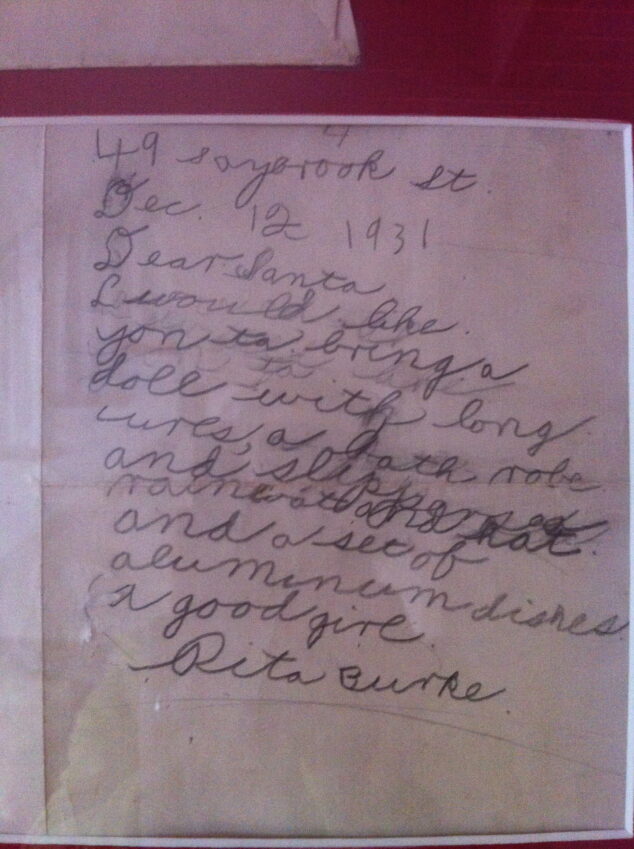 49 saybrook st.
Dec. 12 1931
Dear Santa
I would like
you to bring a
doll with long
cures, a bath robe
and slippers a
raincoat and hat
and a set of
aluminum dishes
a good girl
Rita Burke.